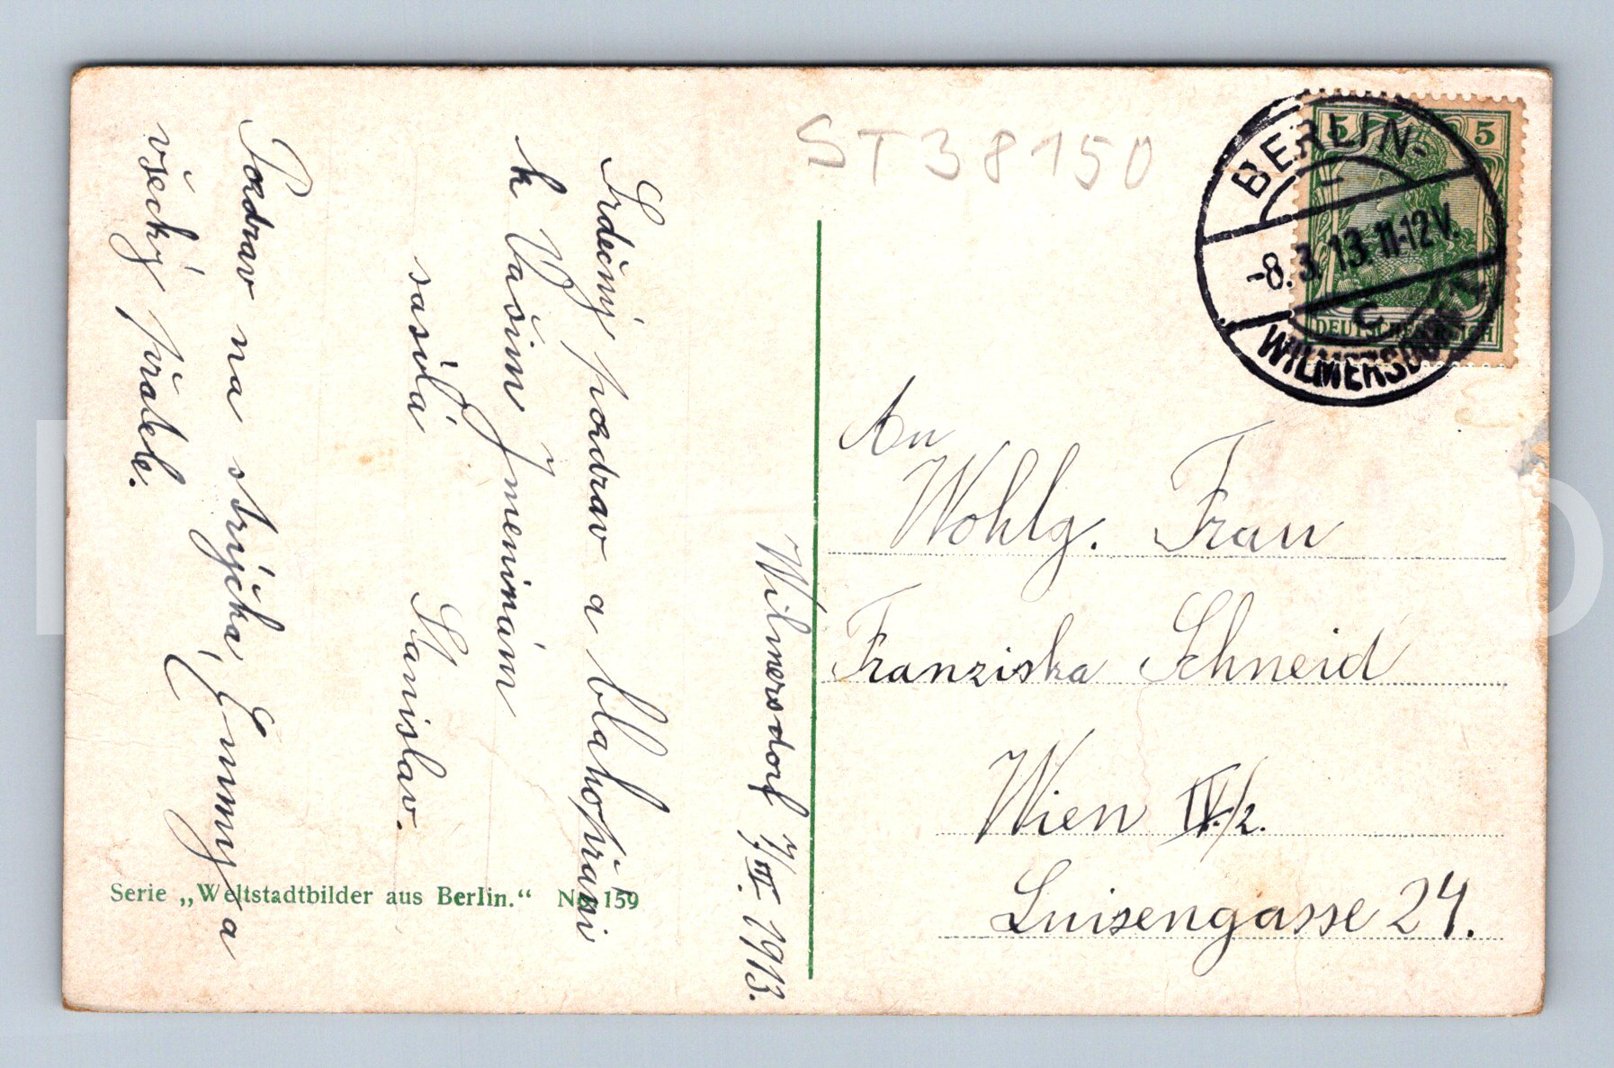 Wilmersdorf 7/III. 1913.
Srdečný pozdrav a blahopřání
k Vašim Jmeninám
zasílá Stanislav.
Pozdrav na strýčka, Emmy a
všecky přátele.
Serie „Weltstadtbilder aus Berlin.“ No. 159
ST38150
BERLIN-
-8.3.13.11-12V.
C
WILMERSDORF 1
5 5
DEUTSCHES REICH
An
Wohlg. Frau
Franziska Schneid
Wien IV./2.
Luisengasse 24.